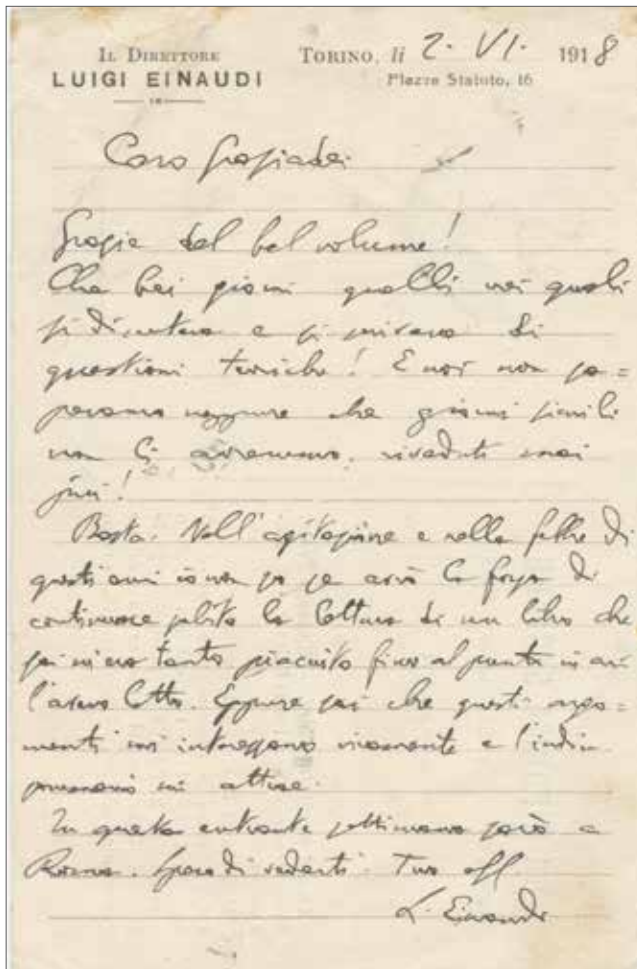 IL DIRETTORE
LUIGI EINAUDI
TORINO, lì 2. VI. 1918
Piazza Statuto, 16
Caro Graziadei
Grazie del bel volume!
Che bei giorni quelli nei quali
si discuteva e si scriveva di
questioni teoriche! E noi non sa=
pevamo neppure che giorni simili
non li avremmo riveduti mai
più!
Basta. Nell'agitazione e nella febbre di
questi anni io non so se avrò la forza di
continuare subito la lettura di un libro che
mi era tanto piaciuto fino al punto in cui
l'avevo letto. Eppure sai che questi argo=
menti mi interessano vivamente e l'indi
mi attrae.
In questa entrante settimana sarò a
Roma. Spero di vederti. Tuo aff.
L. Einaudi